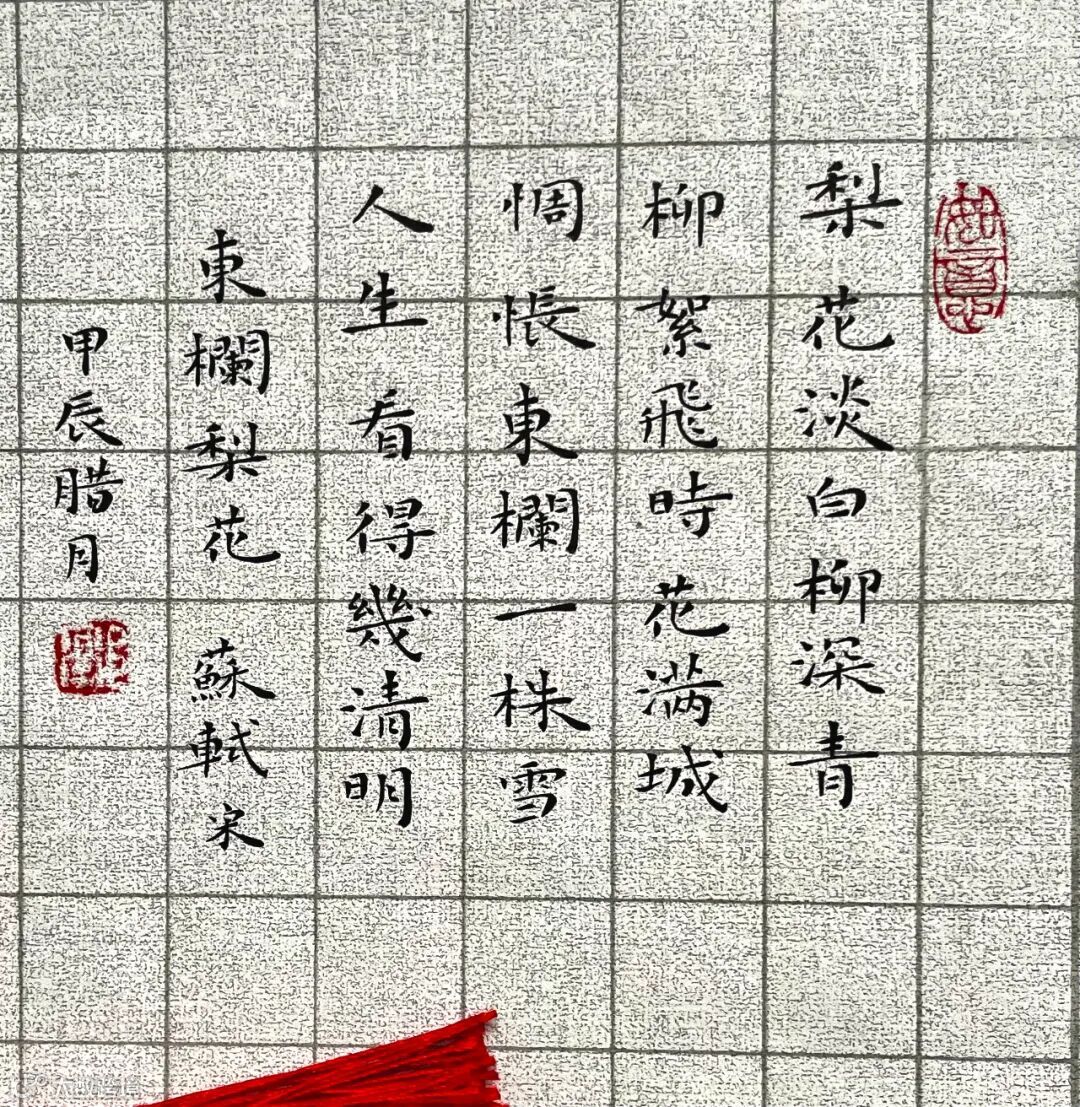 梨花淡白柳深青
柳絮飛時花满城
惆悵東欄一株雪
人生看得幾清明
東欄梨花 蘇軾 宋
甲辰腊月